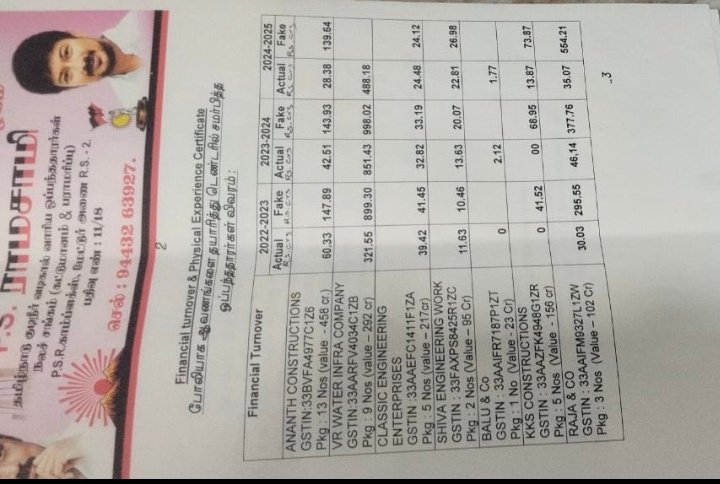 P.S. ராமசாமி
தமிழ்நாடு குடிநீர் வடிகால் வாரிய ஒப்பந்ததாரர்கள்
நலச் சங்கம் (கட்டுமானம் & பராமரிப்பு)
P.S.R.காம்ப்ளக்ஸ், மேட்டூர் அணை R.S. - 2.
பதிவு எண் : 11/18
செல் : 94432 63927.
2
Financial turnover & Physical Experience Certificate
போலியாக ஆவணங்களை தயாரித்து டெண்டரில் சமர்பித்த
ஒப்பந்ததாரர்கள் விவரம் :
Financial Turnover 2022-2023 2023-2024 2024-2025
Actual Fake Actual Fake Actual Fake
Rs. crs Rs. crs Rs. crs Rs. crs Rs. crs Rs. crs
ANANTH CONSTRUCTIONS
GSTIN:33BVFA4977C1Z8 60.33 147.89 42.51 143.93 28.38 139.64
Pkg : 13 Nos (Value - 458 cr)
VR WATER INFRA COMPANY
GSTIN:33AARFV4034C1ZB 321.55 899.30 851.43 998.02 488.18
Pkg : 9 Nos (value – 292 cr)
CLASSIC ENGINEERING
ENTERPRISES
GSTIN :33AAEFC1411F1ZA 39.42 41.45 32.82 33.19 24.48 24.12
Pkg : 5 Nos (value – 217cr)
SHIVA ENGINEERING WORK
GSTIN : 33FAXPS8425R1ZC 11.63 10.46 13.63 20.07 22.81 26.98
Pkg : 2 Nos (Value – 95 Cr)
BALU & Co
GSTIN : 33AAIFR7187P1ZT 0 2.12 1.77
Pkg : 1 No (Value - 23 Cr)
KKS CONSTRUCTIONS
GSTIN : 33AAZFK4948G1ZR 0 41.52 00 68.95 13.87 73.87
Pkg : 5 Nos (Value - 156 cr)
RAJA & CO
GSTIN : 33AAIFM9327L1ZW 30.03 295.55 46.14 377.76 35.07 554.21
Pkg : 3 Nos (Value – 102 Cr)
..3